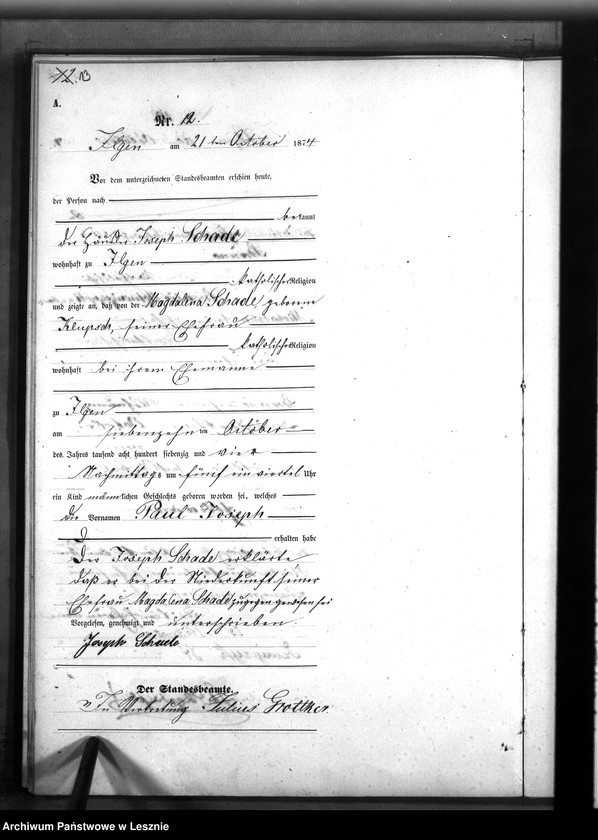 12. 13
A.
Nr. 12.
Ilgen am 21ten October 1874
Vor dem unterzeichneten Standesbeamten erschien heute,
der Person nach
bekannt
der Häusler Joseph Schade
wohnhaft zu Ilgen
katholischer Religion
und zeigte an, daß von der Magdalena Schade, geborene
Klupsch, seiner Ehefrau
katholischer Religion
wohnhaft bei ihrem Ehemanne
zu Ilgen
am siebenzehnten October
des Jahres tausend acht hundert siebenzig und vier
Nachmittags um fünf ein viertel Uhr
ein Kind männlichen Geschlechts geboren worden sei, welches
die Vornamen Paul Joseph
erhalten habe
Der Joseph Schade erklärte,
daß er bei der Niederkunft seiner
Ehefrau Magdalena Schade zugegen gewesen sei
Vorgelesen, genehmigt und unterschrieben.
Joseph Schade
Der Standesbeamte.
In Vertretung Julius Grottker
Archiwum Państwowe w Lesznie